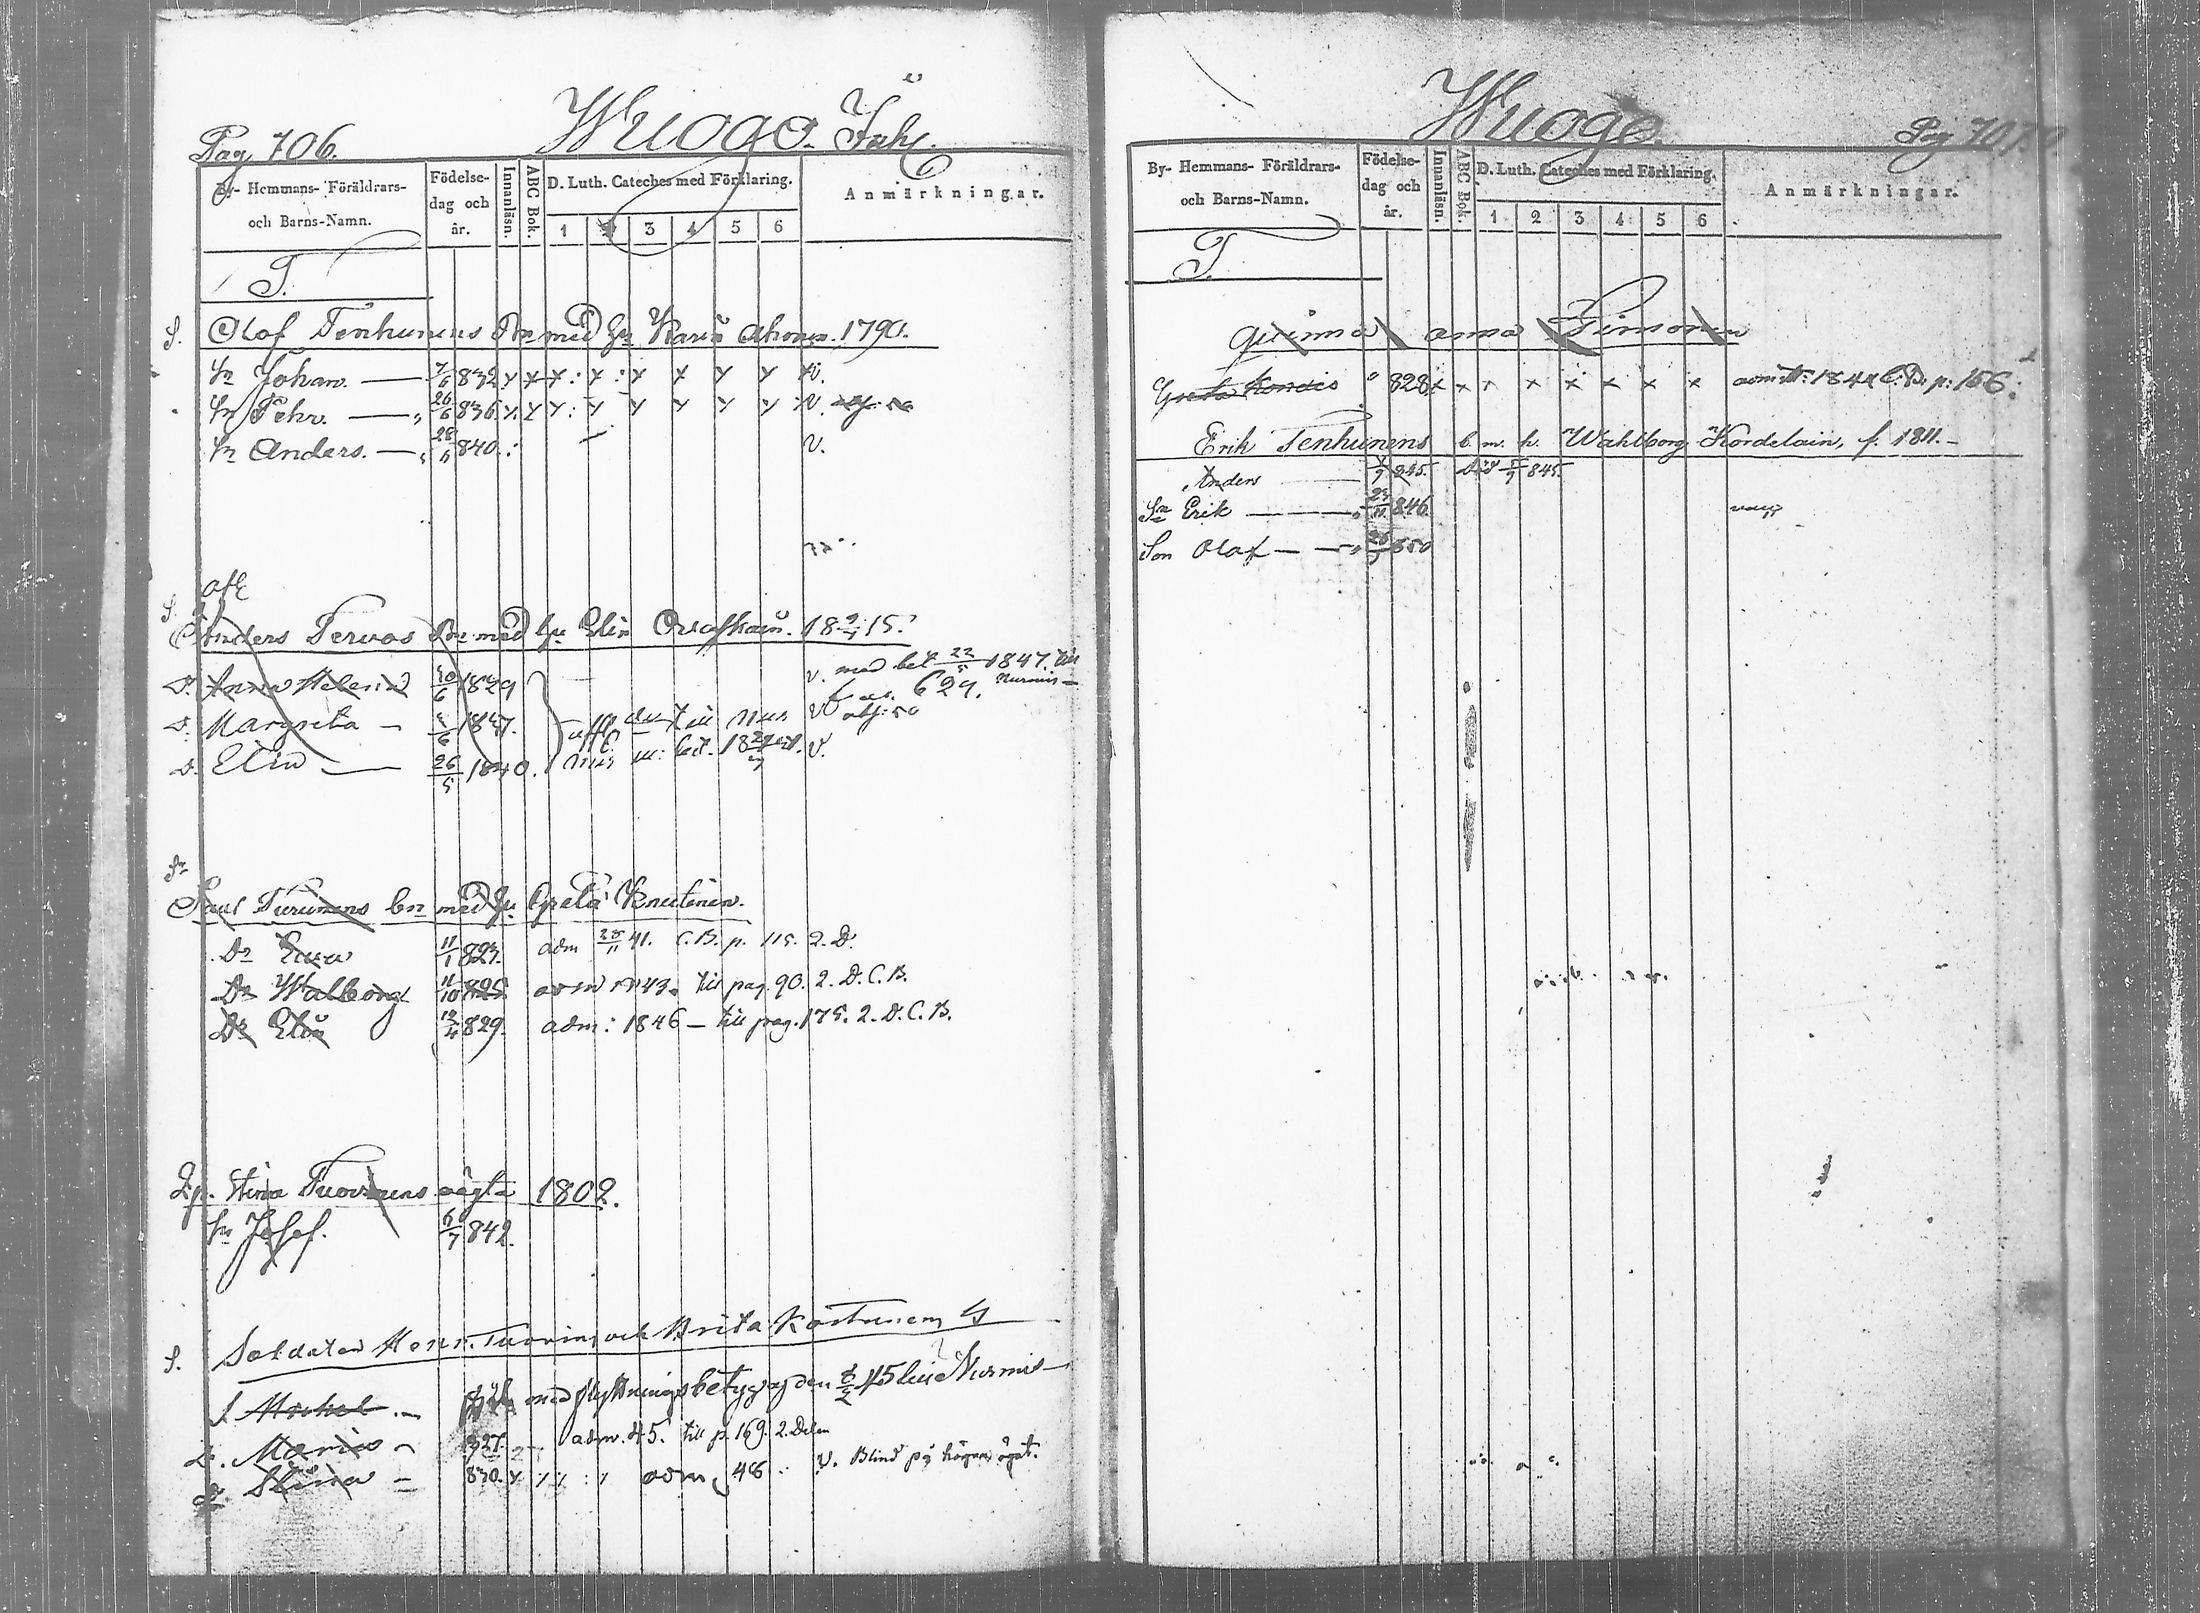 Pag 706.
Wuogo
By- Hemmans- Föräldrars-
och Barns-Namn.
Födelse-
dag och
år.
Innanläsn.
ABC Bok.
D. Luth. Cateches med Förklaring.
1 2 3 4 5 6
Anmärkningar.
T.
S. Olof Tenhunens Bn med hu Karin Ahonen. 1790.
Sn Johan. — 7/6 832 x x x : x : x x x x v.
Sn Pehr. — 26/6 836 x x x : x x x x x v.
Sn Anders. — 840. v.
S. Anders Tervos Bn med hu Elin 18 15.
D. Anna Helena 1829 v. med bet 22/5 1847. till Nurmis
D. Margreta — v 629.
D. Elin — 26/5 1840. v.
Sn
Paul Turunens bn med hu Greta Knutinen.
Dr Eva 11/1 823. adm 28/11 41. C.B. p. 115. 2. D.
Dr Walborg 11/10 825. adm 43. till pag. 90. 2. D. C. B.
Dr Elin 829. adm: 1846 — till pag. 175. 2. D. C. B.
Stina Tuovinens oägta 1802.
Sn Josef. 6/7 842.
S. Soldaten Henr. Tuovin och Brita Kortunens
S Michel — med flyttningsbetyg af den 8/2 45 till Nurmis
D. Maria — 827. adm. 45. till p. 169. 2. Delen
D. Stina — 830. x adm, 46 v. Blind på högra ögat.
Wuogo.
Pag 707.
By- Hemmans- Föräldrars-
och Barns-Namn.
Födelse-
dag och
år.
Innanläsn.
ABC Bok.
D. Luth. Cateches med Förklaring.
1 2 3 4 5 6
Anmärkningar.
T.
Qvinna Anna Timonen
Greta 828 x x x x x x x x C. B. p: 156:
Erik Tenhunens b. m. h. Wahlborg Kordelain, f. 1811. —
Anders — 845. död 845.
Sn Erik — 846.
Son Olof — 850